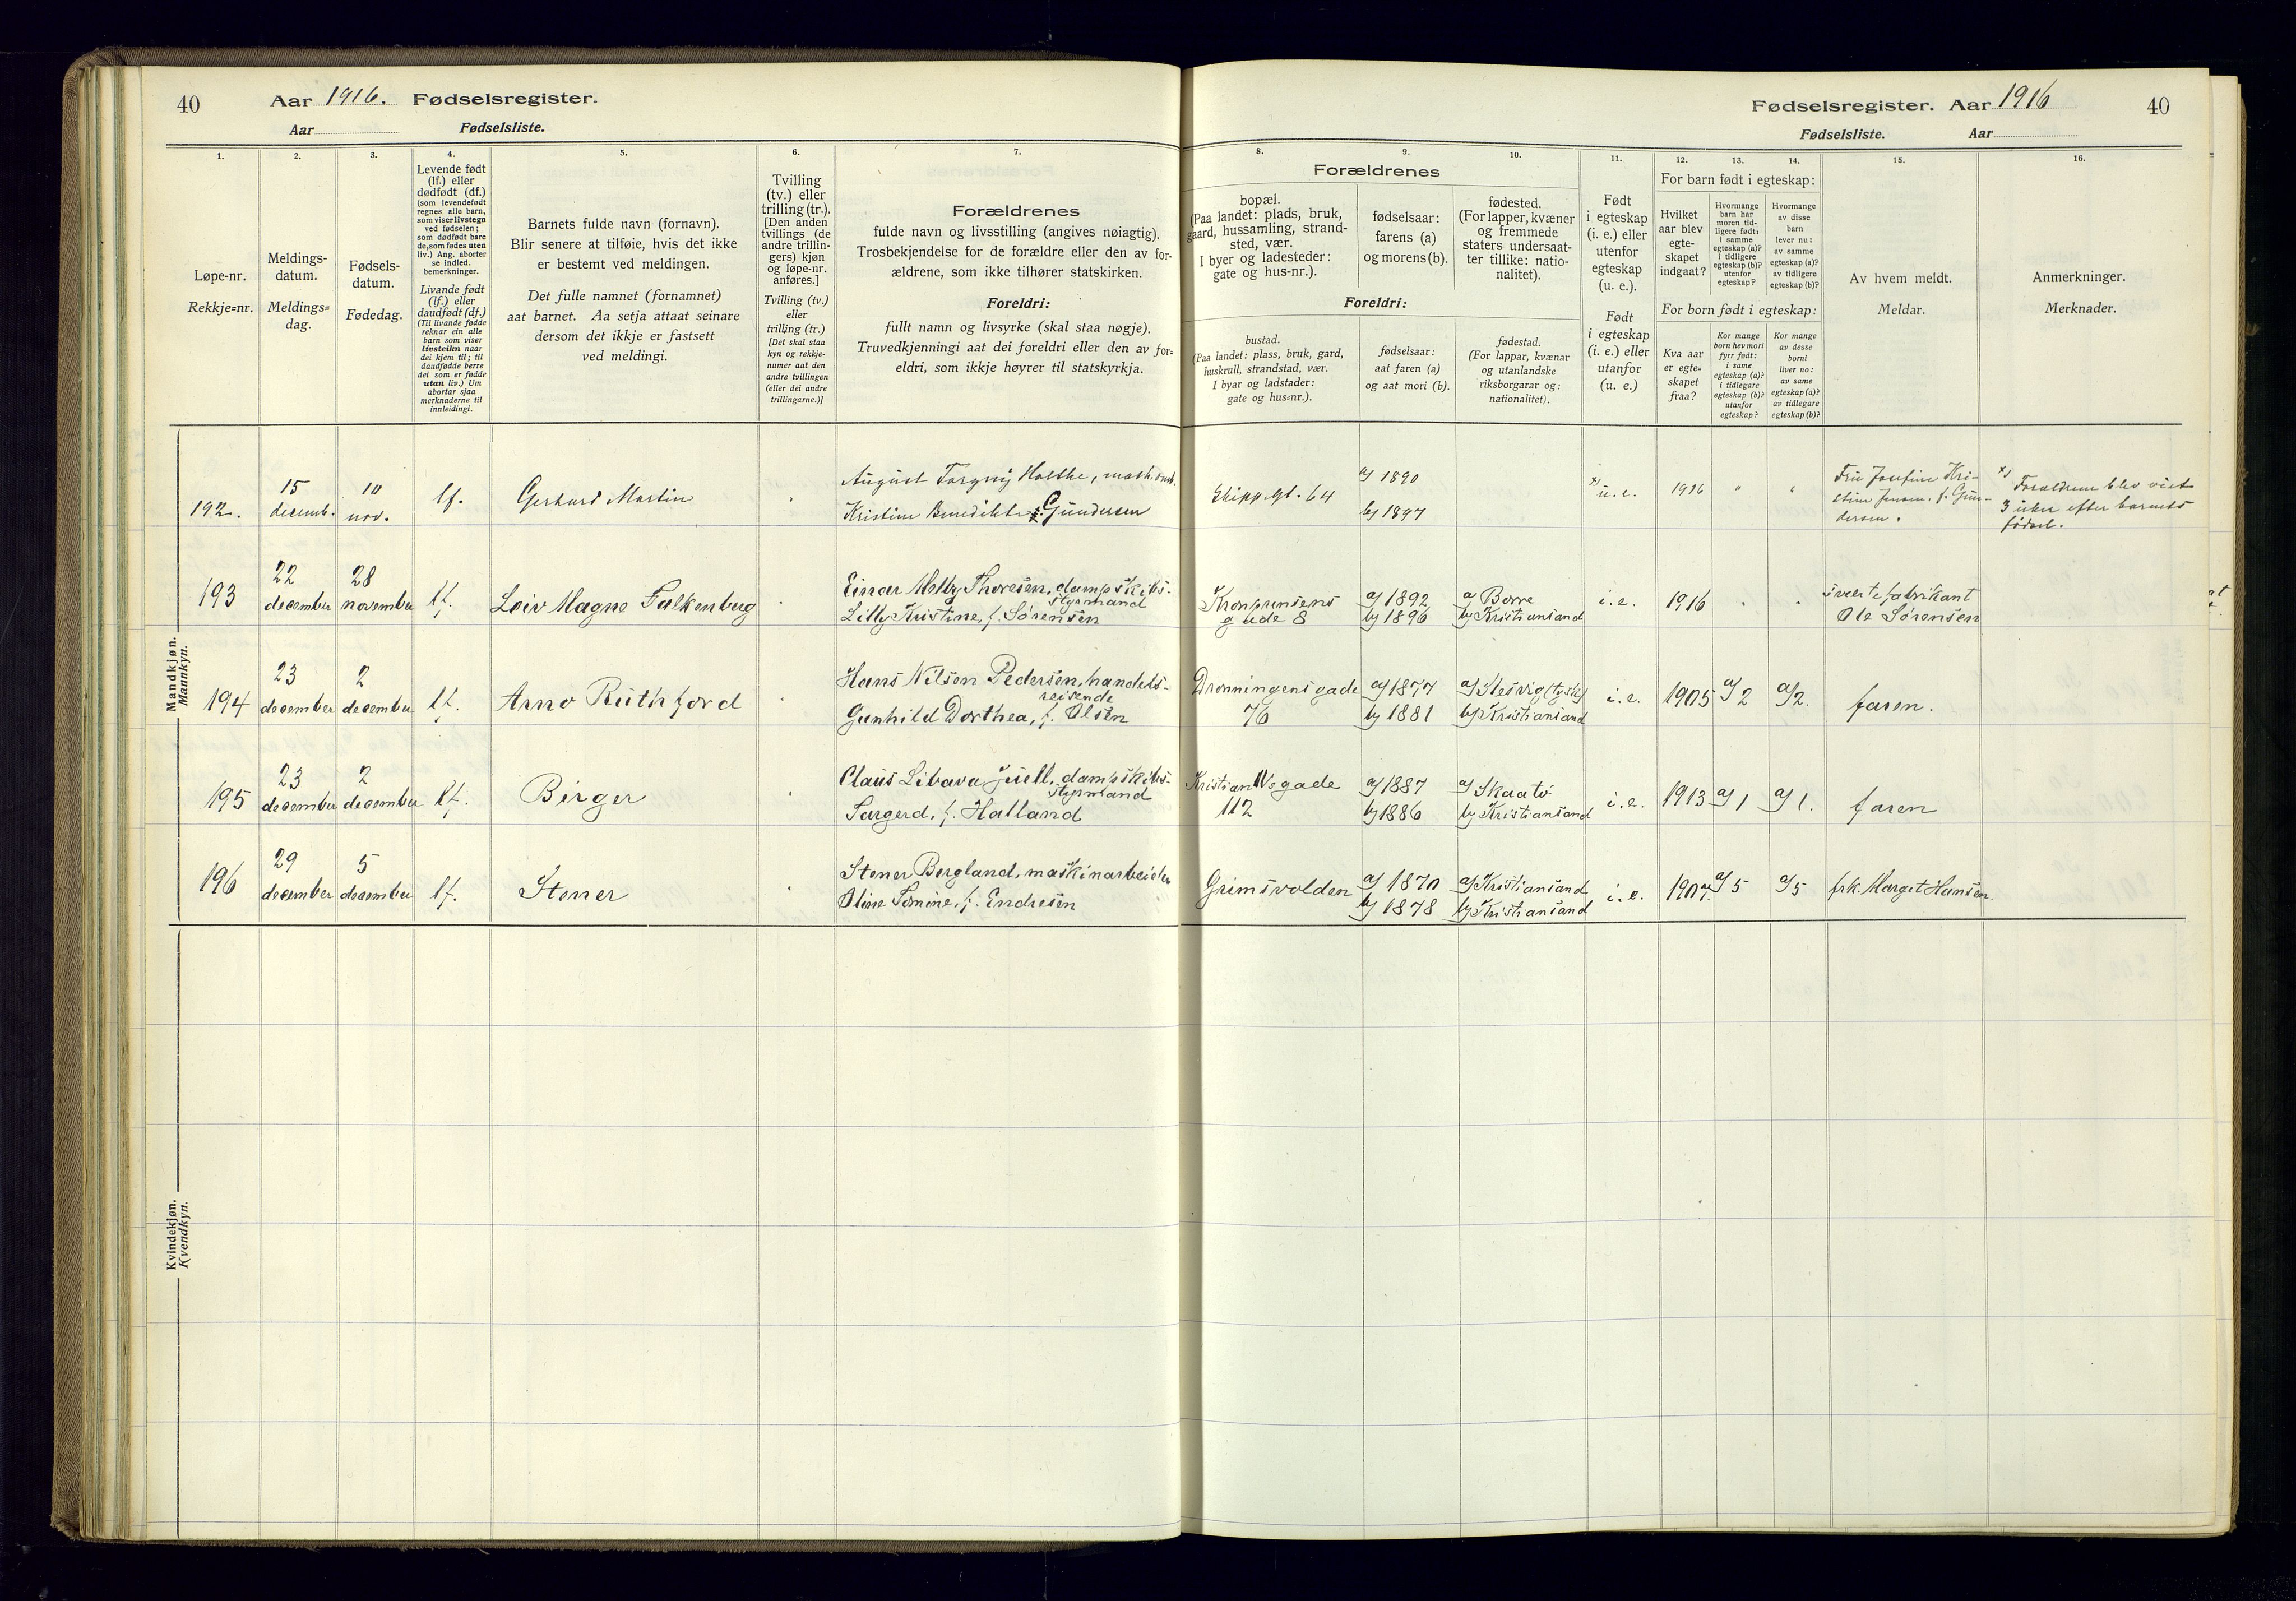 40
Aar 1916. Fødselsregister.
Aar Fødselsliste.
Fødselsregister. Aar 1916
40
Fødselsliste. Aar
1.
Løpe-nr.
Rekkje=nr.
2.
Meldings-
datum.
Meldings=
dag.
3.
Fødsels-
datum.
Fødedag.
4.
Levende født
(lf.) eller
dødfødt (df.)
(som levendefødt
regnes alle barn,
som viser livstegn
ved fødselen;
som dødfødt bare
de, som fødes uten
liv.) Ang. aborter
se indled.
bemerkninger.
Livande født
(lf.) eller
daudfødt (df.)
(Til livande fødde
reknar ein alle
barn som viser
livsteikn naar
dei kjem til; til
daudfødde berre
dei som er fødde
utan liv.) Um
abortar sjaa
merknaderne til
innleidingi.
5.
Barnets fulde navn (fornavn).
Blir senere at tilføie, hvis det ikke
er bestemt ved meldingen.
Det fulle namnet (fornamnet)
aat barnet. Aa setja attaat seinare
dersom det ikkje er fastsett
ved meldingi.
6.
Tvilling
(tv.) eller
trilling (tr.).
[Den anden
tvillings (de
andre trillin-
gers) kjøn
og løpe-nr.
anføres.]
Tvilling (tv.)
eller
trilling (tr.)
[Det skal staa
kyn og rekkje-
numer aat den
andre tvillingen
(eller dei andre
trillingarne.)]
7.
Forældrenes
fulde navn og livsstilling (angives nøiagtig).
Trosbekjendelse for de forældre eller den av for-
ældrene, som ikke tilhører statskirken.
Foreldri:
fullt namn og livsyrke (skal staa nøgje).
Truvedkjenningi aat dei foreldri eller den av for=
eldri, som ikkje høyrer til statskyrkja.
Forældrenes
8.
bopæl.
(Paa landet: plads, bruk,
gaard, hussamling, strand-
sted, vær.
I byer og ladesteder:
gate og hus-nr.).
9.
fødselsaar:
farens (a)
og morens (b).
10.
fødested.
(For lapper, kvæner
og fremmede
staters undersaat-
ter tillike: natio-
nalitet).
Foreldri:
bustad.
(Paa landet: plass, bruk, gard,
huskrull, strandstad, vær.
I byar og ladstader:
gate og hus=nr.).
fødselsaar:
aat faren (a)
og aat mori (b).
fødestad.
(For lappar, kvænar
og utanlandske
riksborgarar og:
nationalitet).
11.
Født
i egteskap
(i. e.) eller
utenfor
egteskap
(u. e.).
Født
i egteskap
(i. e.) eller
utanfor
(u. e.)
For barn født i egteskap:
12.
Hvilket
aar blev
egte-
skapet
indgaat?
13.
Hvormange
barn har
moren tid-
ligere født:
i samme
egteskap (a)?
i tidligere
egteskap (b)?
utenfor
egteskap?
14.
Hvormange
av disse
barn
lever nu:
av samme
egteskap (a)?
av tidligere
egteskap (b)?
For born født i egteskap:
Kva aar
er egte=
skapet
fraa?
Kor mange
born hev mori
fyrr født:
i same
egteskap (a)?
i tidlegare
egteskap (b)?
utanfor
egteskap?
Kor mange
av desse
borni
liver no:
av same
egteskap (a)?
av tidlegare
egteskap (b)?
15.
Av hvem meldt.
Meldar.
16.
Anmerkninger.
Merknader.
Mandkjøn.
Mannkyn.
192. 15 decemb. 10 nov. lf. Gerhard Martin
August Torgny Holthe,
Kristine Benedikte f. Gundersen
Skippergt. 64
a) 1890
b) 1897
x) u. e. 1916
Fru Josefine Kri-
stine Jensen, f. Gun-
dersen.
x) Forældrene blev viet
3 uker efter barnets
fødsel.
193 22 december 28 november lf. Leiv Magne Falkenberg
Einar Melby Thoresen, dampskibs-
styrmand
Lilly Kristine, f. Sørensen
Kronprinsens
gade 8
a) 1892
b) 1896
a) Borre
b) Kristiansand
i. e. 1916
sværtefabrikant
Ole Sørensen
194 23 december 2 december lf. Arno Ruthford
Hans Nilsen Pedersen, handels-
reisende
Gunhild Dorthea, f. Olsen
Dronningensgade
76
a) 1877
b) 1881
a) Slesvig (tysk)
b) Kristiansand
i. e. 1905 a) 2 a) 2. faren.
195 23 december 2 december lf. Birger
Claus Libava Juell, dampskibs-
styrmand
Sargerd, f. Halland
Kristian IVs gade
112
a) 1887
b) 1886
a) Skaatø
b) Kristiansand
i. e. 1913 a) 1 a) 1. faren
196 29 december 5 december lf. Stener
Stener Bergland, maskinarbeider
Oline Tomine, f. Endresen
Grimsvolden
a) 1870
b) 1878
a) Kristiansand
b) Kristiansand
i. e. a) 5 a) 5 frk. Margit Hansen.
Kvindekjøn.
Kvendkyn.